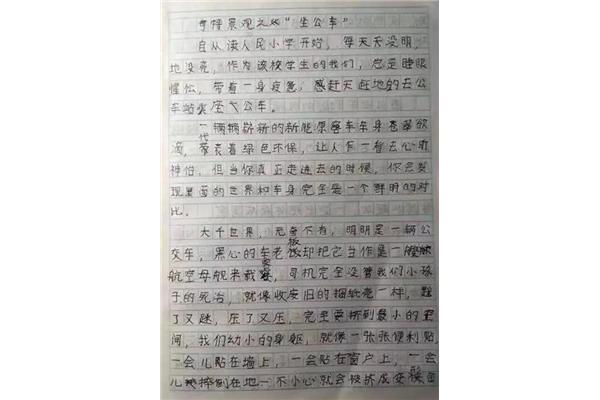 奇特景观之"坐公车"
自从读人民小学开始,每天天没明,
地没亮,作为该校学生的我们,总是睡眼
惺忪,带着一身疲惫,感赶天赶地的去公
车站座公车。
一辆辆崭新的新能源客车车身苍翠欲
滴,代表着绿色环保,让人乍一看去心旷
神怡,但当你真正走进去的时候,你会发
现里面的世界和车身完全是一个鲜明的对
比。
大千世界,无奇不有,明明是一辆公
交车,黑心的车老板却把它当作是一艘
航空母舰来载客,司机完全没管我们小孩
子的死活,就像收废旧的捆纸壳一样,
了又,压了又压,完全要挤到最小的空
间,我们幼小的身躯,就像一张张便利贴,
一会儿贴在墙上,一会贴在窗户上,一会
儿摔倒在地一不小心就会被挤成变形金